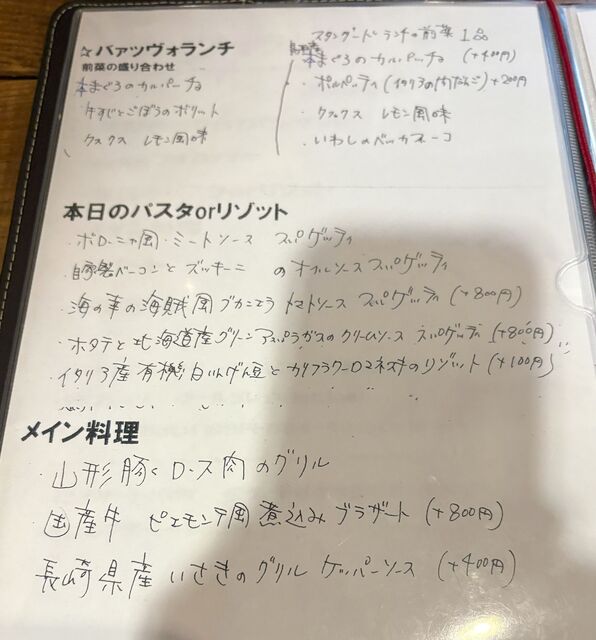 ☆バァッヴォランチ
前菜の盛り合わせ
本まぐろのカルパッチョ
牛すじとごぼうのポリット
クスクス レモン風味
スタンダードランチの前菜 1品
本まぐろのカルパッチョ (+400円)
・ポルペッティ(イタリアの肉だんご)+200円
・クスクス レモン風味
・いわしのベッカフィーコ
本日のパスタorリゾット
・ボローニャ風・ミートソース スパゲッティ
・自家製ベーコンとズッキーニ のオイルソース スパゲッティ
・海の幸の海賊風 ブカニエラ トマトソース スパゲッティ (+800円)
・ホタテと北海道産グリーンアスパラガスのクリームソース スパゲッティ (+800円)
・イタリア産有機白いんげん豆とカリフラワーロマネスキのリゾット (+100円)
メイン料理
・山形豚ロース肉のグリル
国産牛 ピエモンテ風 煮込み ブラザート (+800円)
長崎県産 いさきのグリル ケッパーソース (+400円)